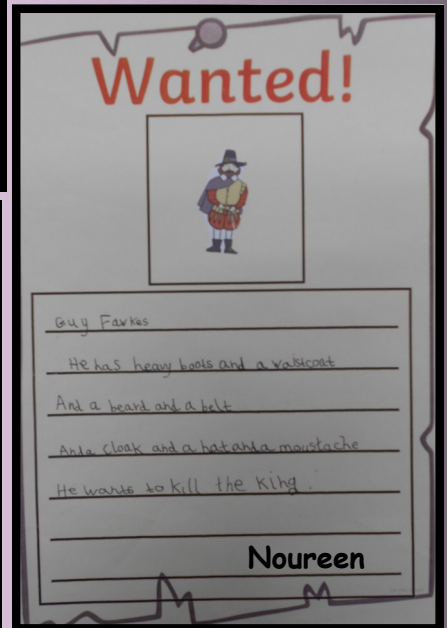 Wanted!
Guy Fawkes
He has heavy boots and a waistcoat
And a beard and a belt
And a cloak and a hat and a moustache
He wants to kill the king.
Noureen